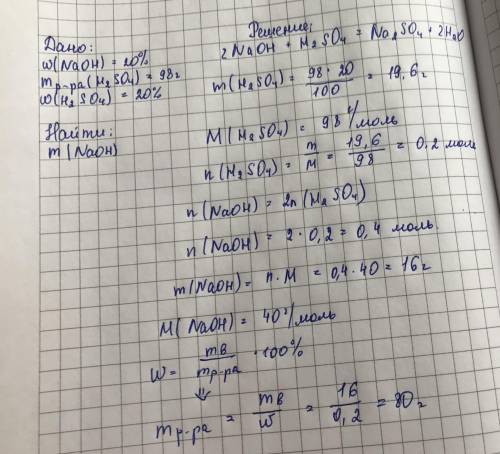 Дано:
w(NaOH) = 20%
mр-ра(H₂SO₄) = 98г
w(H₂SO₄) = 20%
Найти:
m(NaOH)
Решение:
2NaOH + H₂SO₄ = Na₂SO₄ + 2H₂O
m(H₂SO₄) = 98·20/100 = 19,6г
M(H₂SO₄) = 98 г/моль
n(H₂SO₄) = m/M = 19,6/98 = 0,2 моль
n(NaOH) = 2n(H₂SO₄)
n(NaOH) = 2·0,2 = 0,4 моль.
m(NaOH) = n·M = 0,4·40 = 16г
M(NaOH) = 40 г/моль
W = mв/mр-ра ·100%
⇓
mр-ра = mв/w = 16/0,2 = 80г